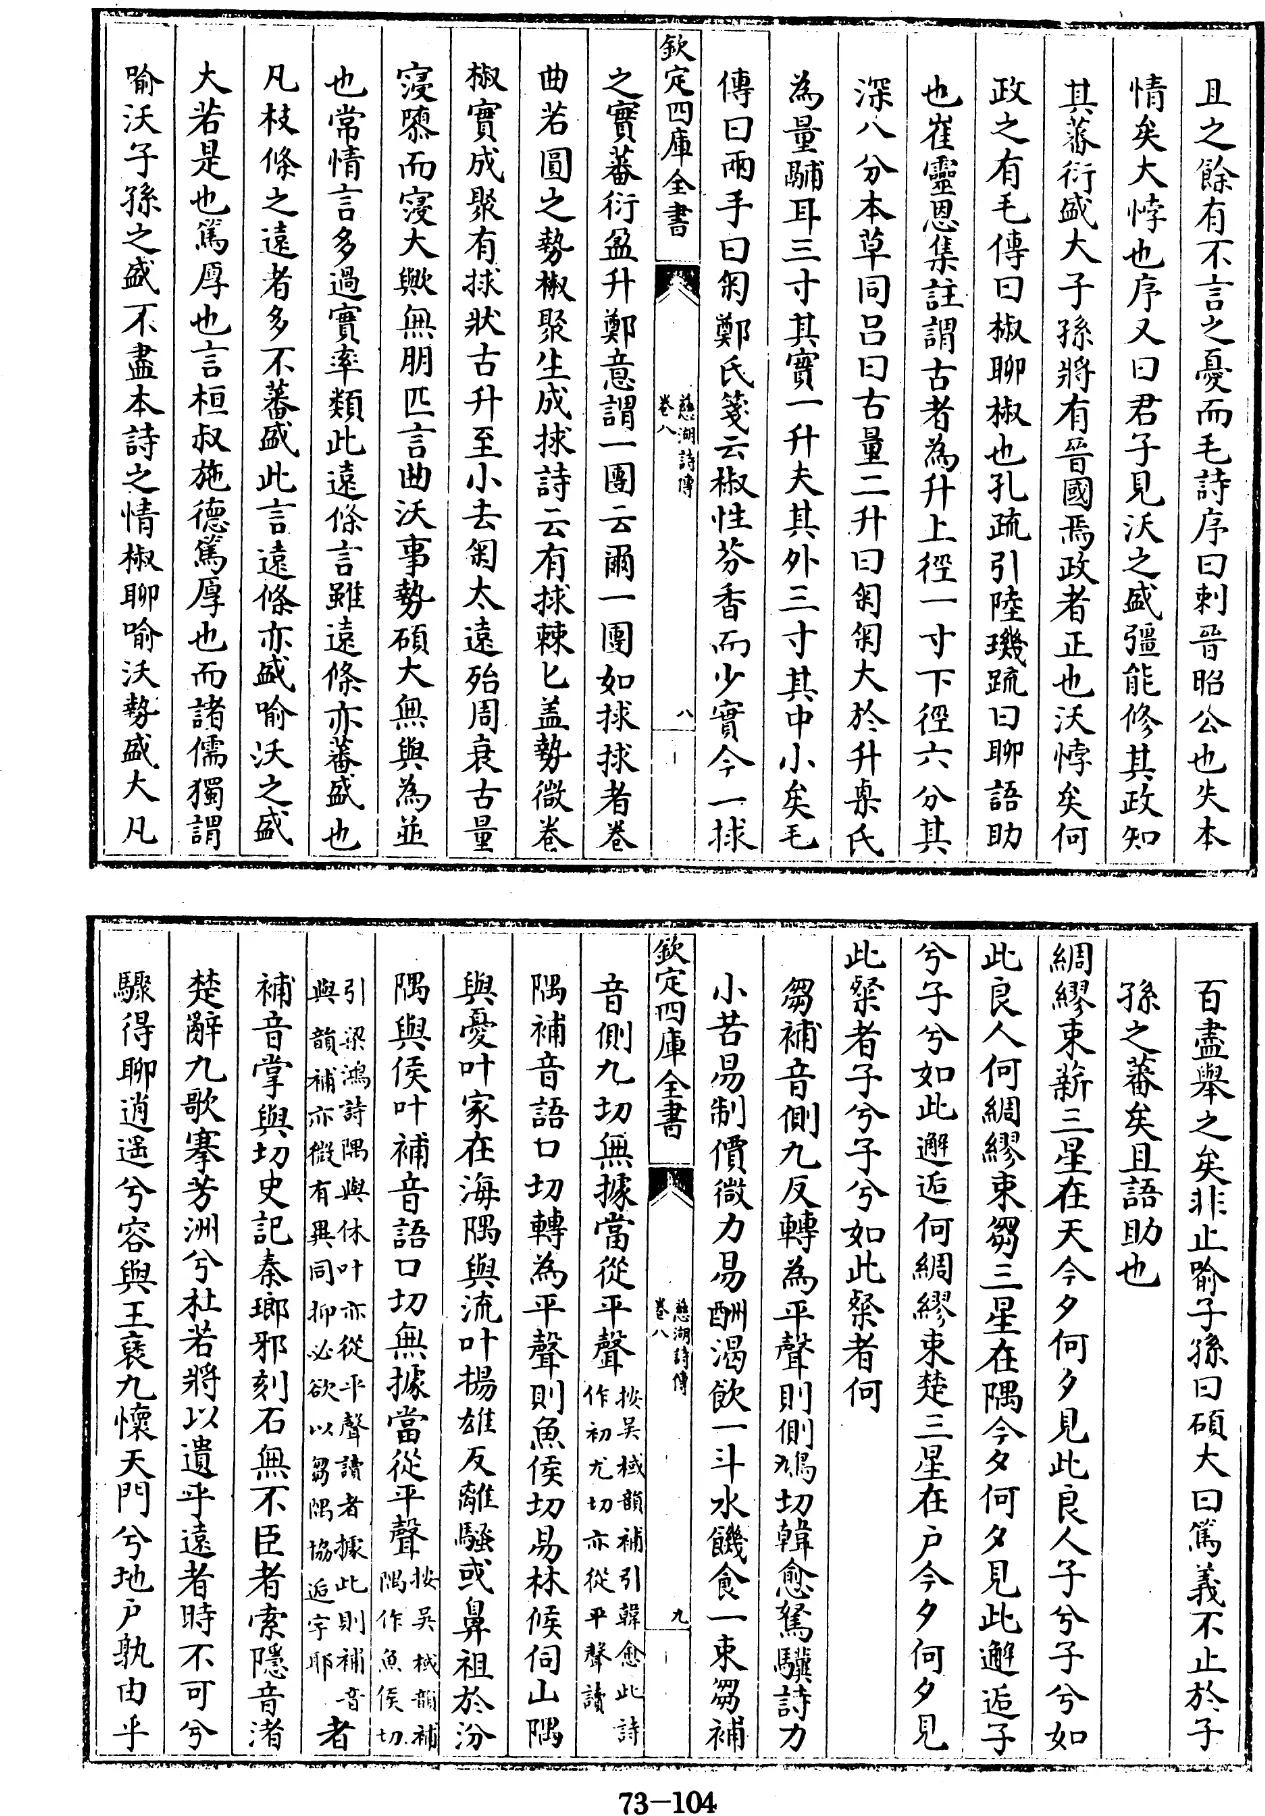 且之餘有不言之憂而毛詩序曰刺晉昭公也失本
情矣大悖也序又曰君子見沃之盛彊能修其政知
其蕃衍盛大子孫將有晉國焉政者正也沃悖矣何
政之有毛傳曰椒聊椒也孔疏引陸璣疏曰聊語助
也崔靈恩集註謂古者為升上徑一寸下徑六分其
深八分本草同吕曰古量二升曰匊匊大於升㮚氏
為量鬴耳三寸其實一升夫其外三寸其中小矣毛
傳曰兩手曰匊鄭氏箋云椒性芬香而少實今一捄
欽定四庫全書
慈湖詩傳
卷八
八
之實蕃衍盈升鄭意謂一團云爾一團如捄捄者卷
曲若圓之勢椒聚生成捄詩云有捄棘匕盖勢微卷
椒實成聚有捄狀古升至小去匊太遠殆周衰古量
寖隳而寖大歟無朋匹言曲沃事勢碩大無與為並
也常情言多過實率類此遠條言雖遠條亦蕃盛也
凡枝條之遠者多不蕃盛此言遠條亦盛喻沃之盛
大若是也篤厚也言桓叔施德篤厚也而諸儒獨謂
喻沃子孫之盛不盡本詩之情椒聊喻沃勢盛大凡
百盡舉之矣非止喻子孫曰碩大曰篤義不止於子
孫之蕃矣且語助也
綢繆束薪三星在天今夕何夕見此良人子兮子兮如
此良人何綢繆束芻三星在隅今夕何夕見此邂逅子
兮子兮如此邂逅何綢繆束楚三星在户今夕何夕見
此粲者子兮子兮如此粲者何
芻補音側九反轉為平聲則側鳩切韓愈駑驥詩力
小苦易制價微力易酬渴飲一斗水饑食一束芻補
欽定四庫全書
慈湖詩傳
卷八
九
音側九切無據當從平聲按吴棫韻補引韓愈此詩
作初尤切亦從平聲讀
隅補音語口切轉為平聲則魚侯切易林候伺山隅
與憂叶家在海隅與流叶揚雄反離騷或鼻祖於汾
隅與侯叶補音語口切無據當從平聲按吴棫韻補
隅作魚侯切
引梁鴻詩隅與休叶亦從平聲讀者據此則補音
與韻補亦微有異同抑必欲以芻隅協逅字耶者
補音掌與切史記秦瑯邪刻石無不臣者索隱音渚
楚辭九歌搴芳洲兮杜若將以遺乎遠者時不可兮
驟得聊逍遥兮容與王襃九懷天門兮地户孰由乎
73-104